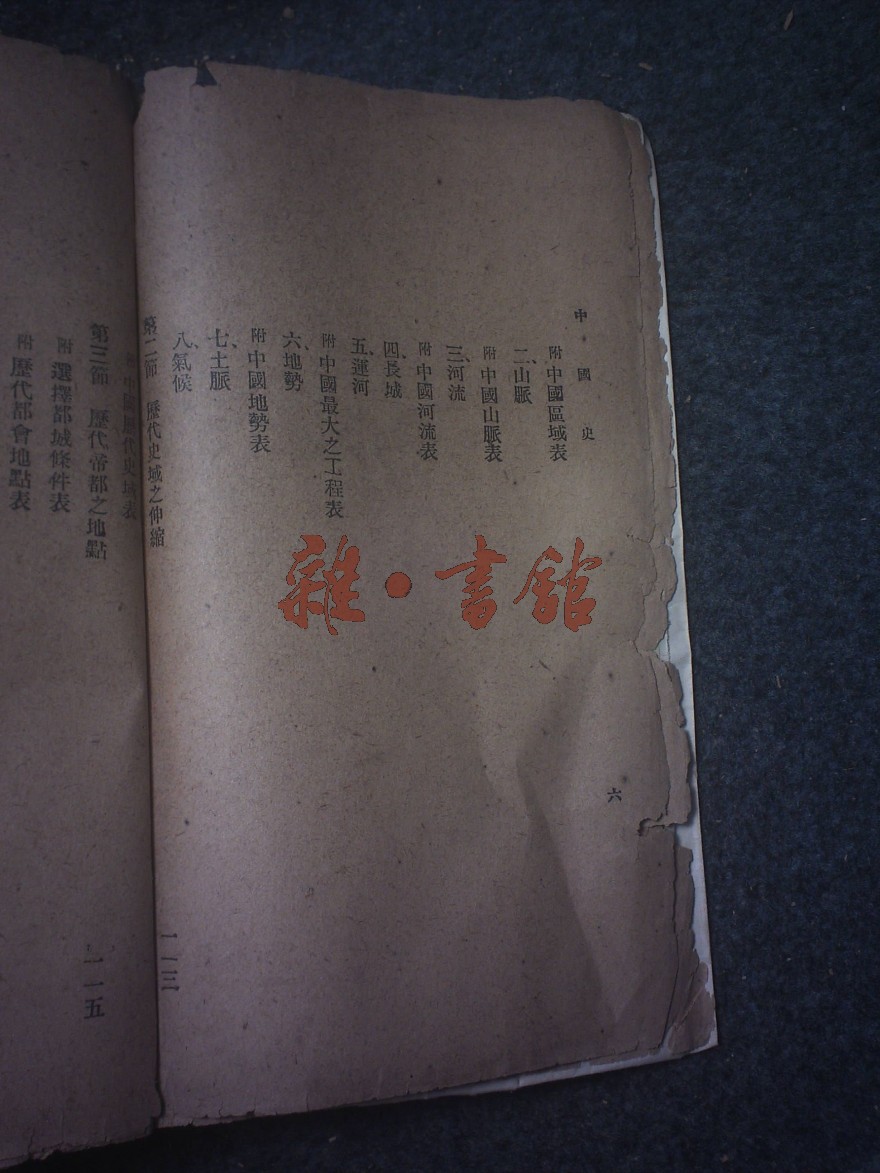 中國史
附 中國區域表
二、山脈
附 中國山脈表
三、河流
附 中國河流表
四、長城
五、運河
附 中國最大之工程表
六、地勢
附 中國地勢表
七、土脈
八、氣候
第二節 歷代史域之伸縮 一一三
附 中國歷代史域表
第三節 歷代帝都之地點 一一五
附 選擇都城條件表
附 歷代都會地點表
六
雜·書館